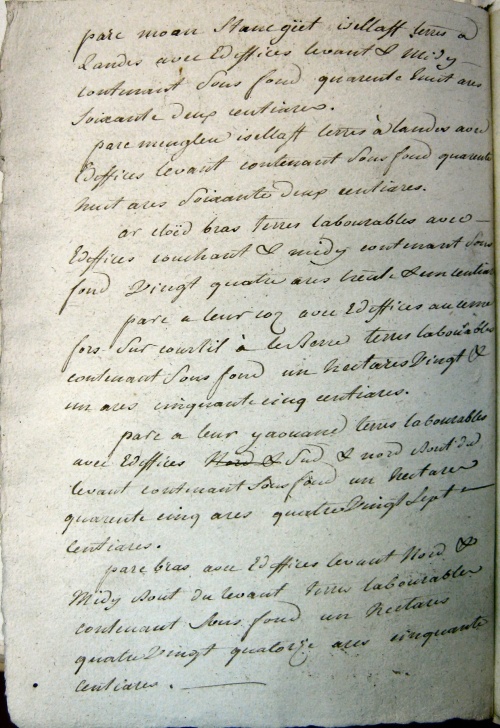 parc moan Stancqüet isellaff terres à
Landes avec Edeffices levant & Midy
contenant Sous fond quarente huit ares
Soixante deux centiares.
parc menglen isellaff terres à landes avec
Edeffices levant contenant Sous fond quarente
huit ares Soixante deux centiares.
ar cloëd bras terres labourables avec
Edeffices couchant & midy contenant Sous
fond Vingt quatre ares trente & un centiares
parc a leur coz avec Edeffices au cerne
fors Sur courtil à terres labourables
contenant Sous fond un hectares Vingt &
un ares cinquante cinq centiares.
parc a leur yaouanc terres labourables
avec Edeffices Nord & Sud & nord bout du
levant contenant Sous fond un hectare
quarente cinq ares quatre Vingt Sept
Centiares.
parc bras avec Edeffices levant Nord &
Midy bout du levant terres labourables
contenant Sous fond un hectares
quatre Vingt quatorze ares cinquante
Centiares.